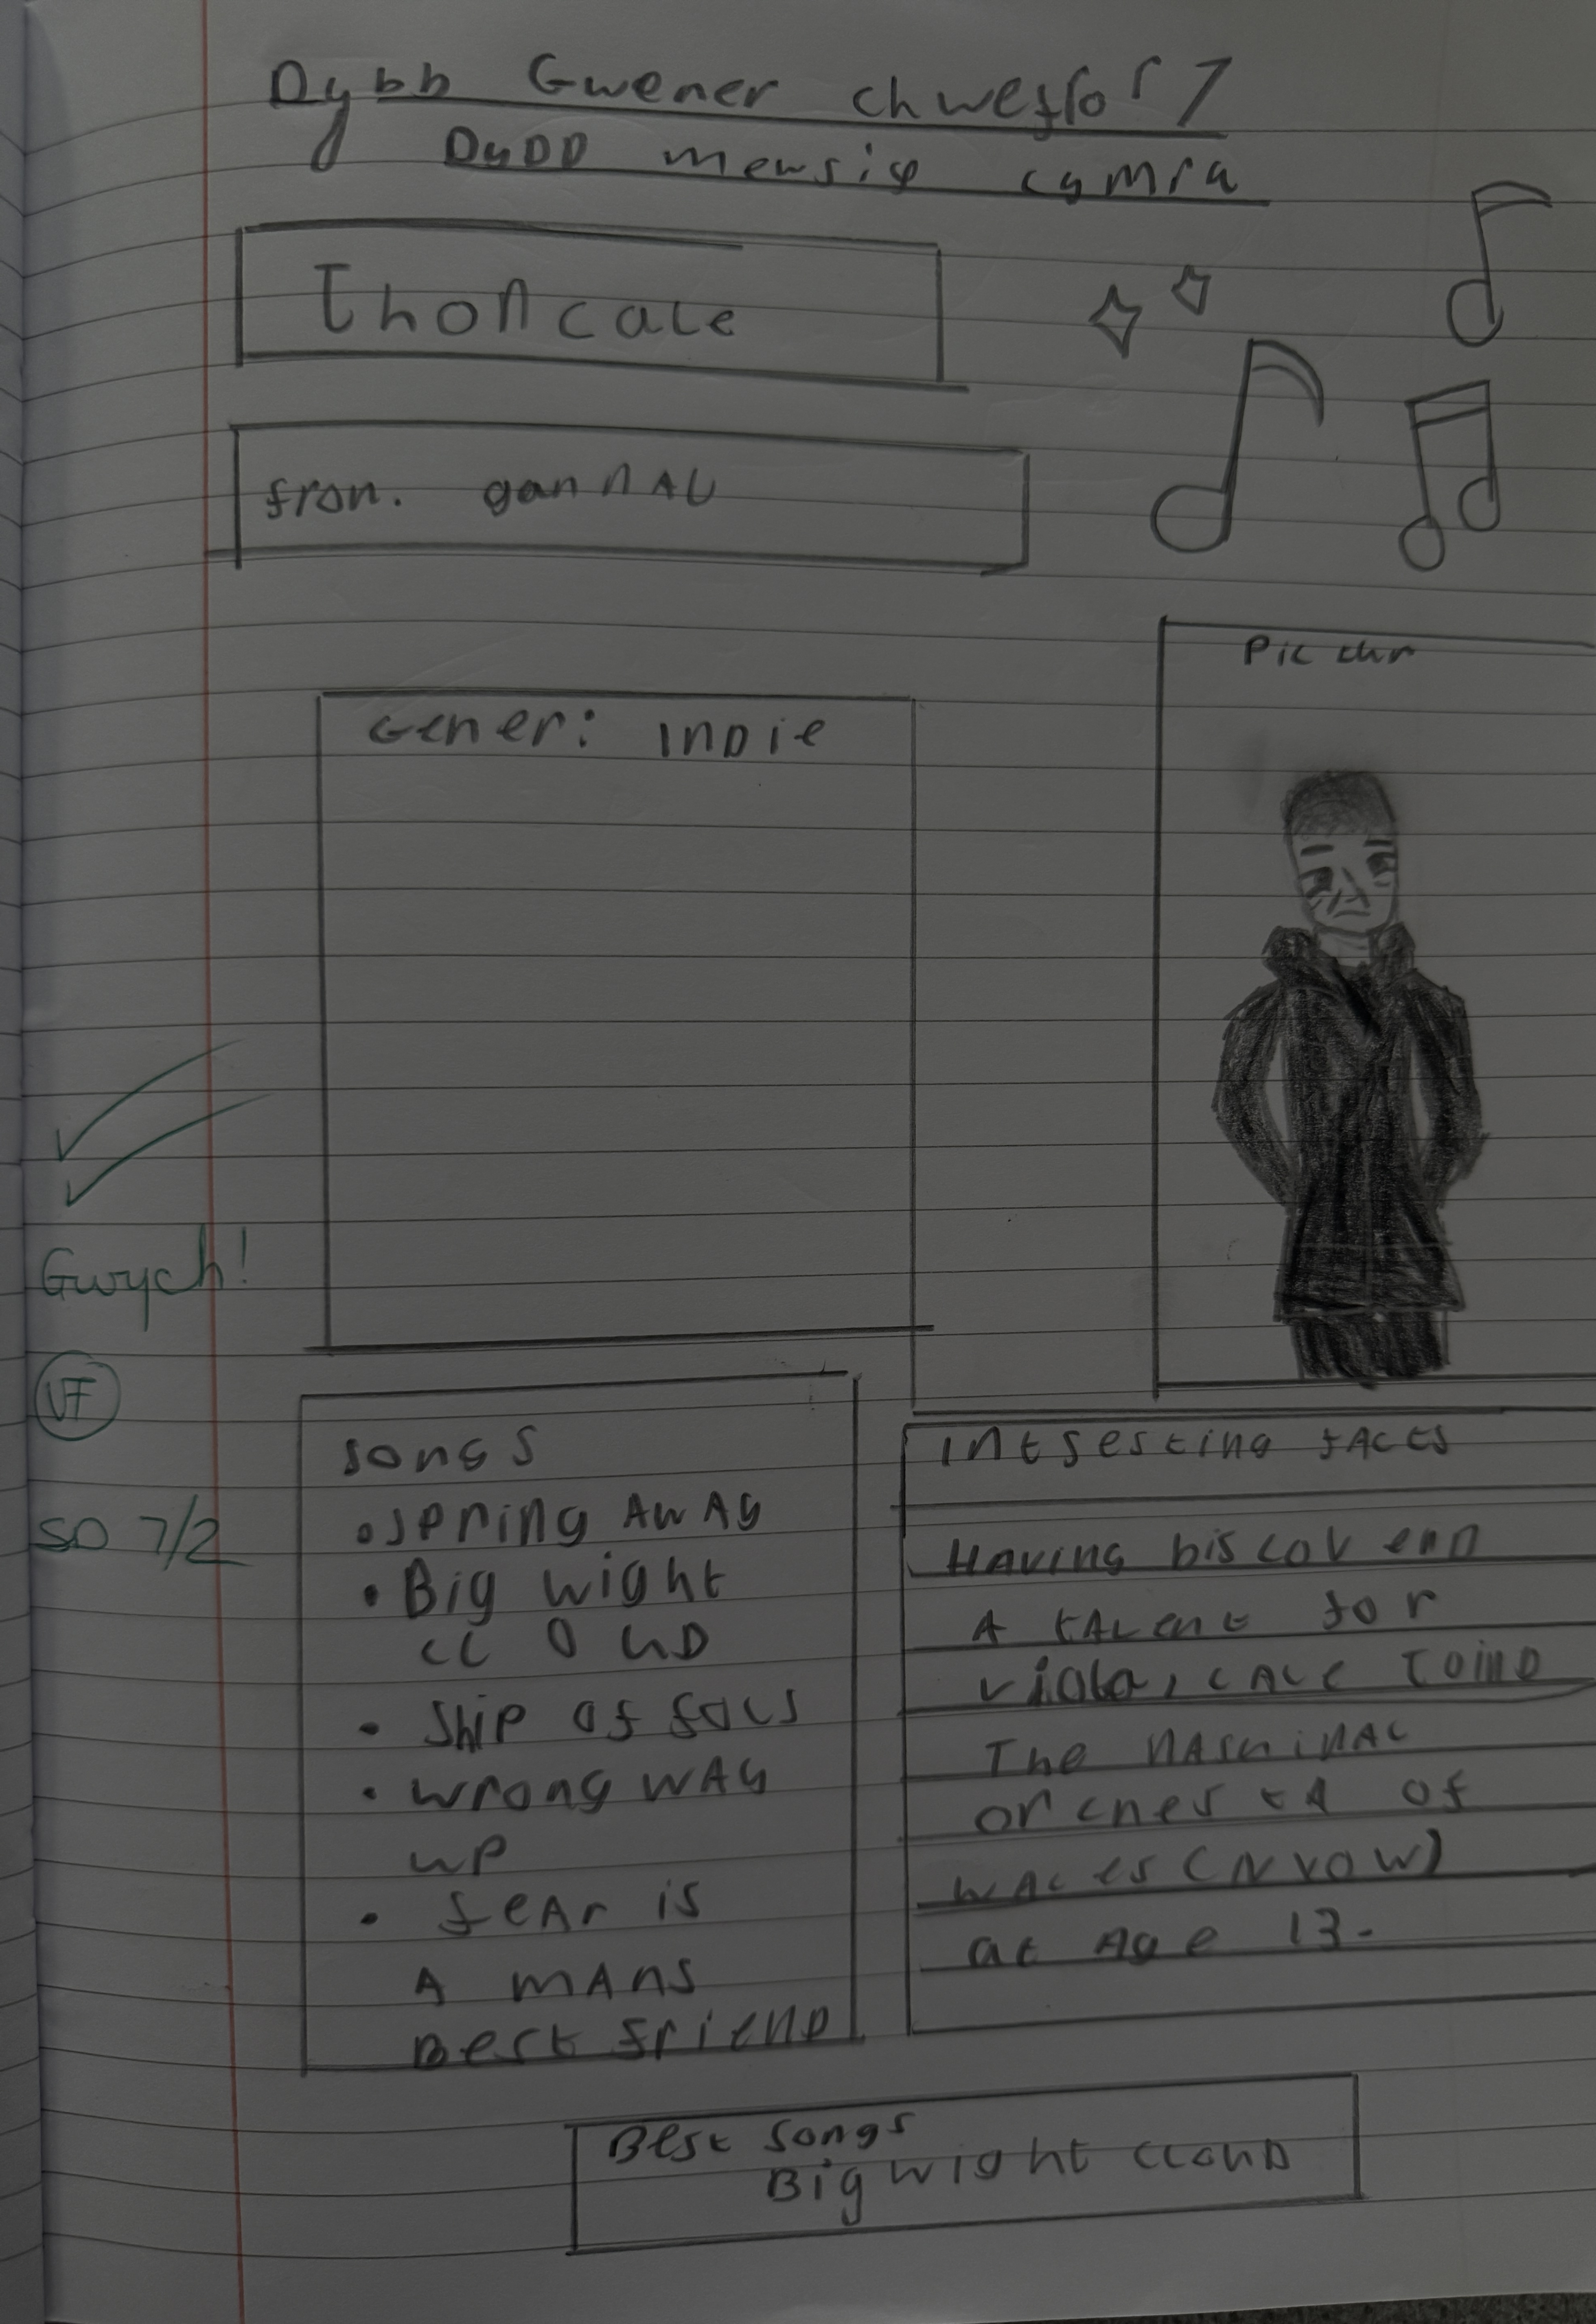 Dybb Gwener chwefror 7
DyDD mewsig cymra
Thoncale
from. garnAL
Picthur
Gener: InDie
Gwych!
VF
SD 7/2
songs
• spring AwAy
• Big wight
cLOuD
• Ship of fols
• wrong wAy
up
• feAr is
A mAns
Best frienD
intsesting fActs
HAving biscoverD
A tALent for
viola, cALe ToinD
The nAshinAL
orchestA of
wALes (NYOW)
at Age 13.
Best songs
Big wight cLouD